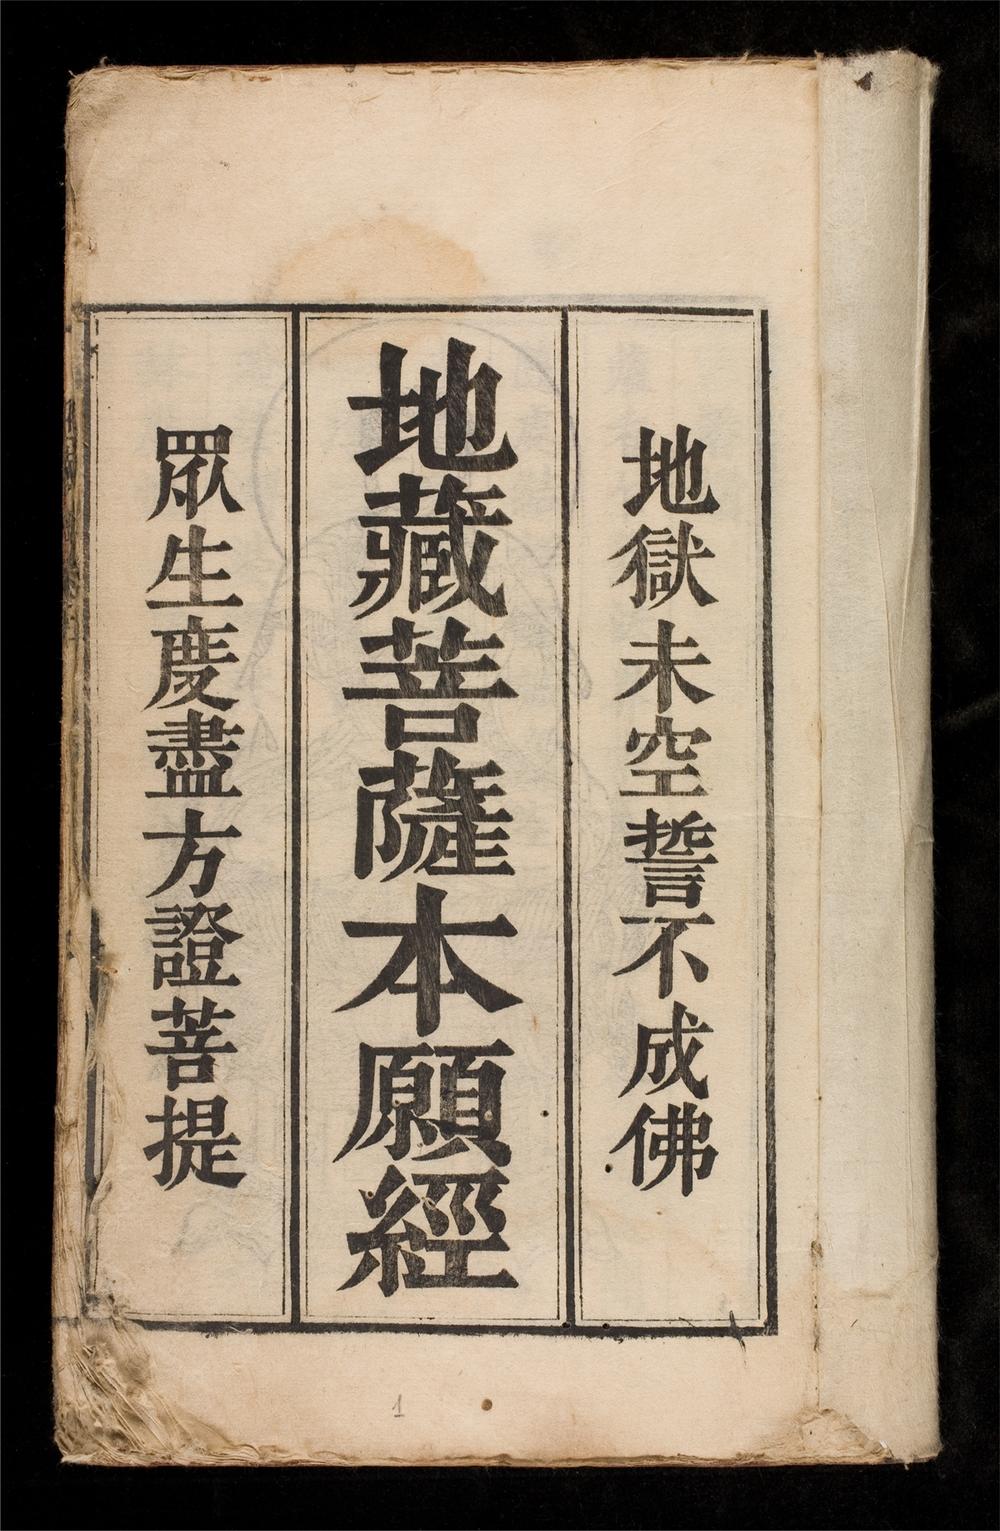 地獄未空誓不成佛
地藏菩薩本願經
眾生度盡方證菩提
1